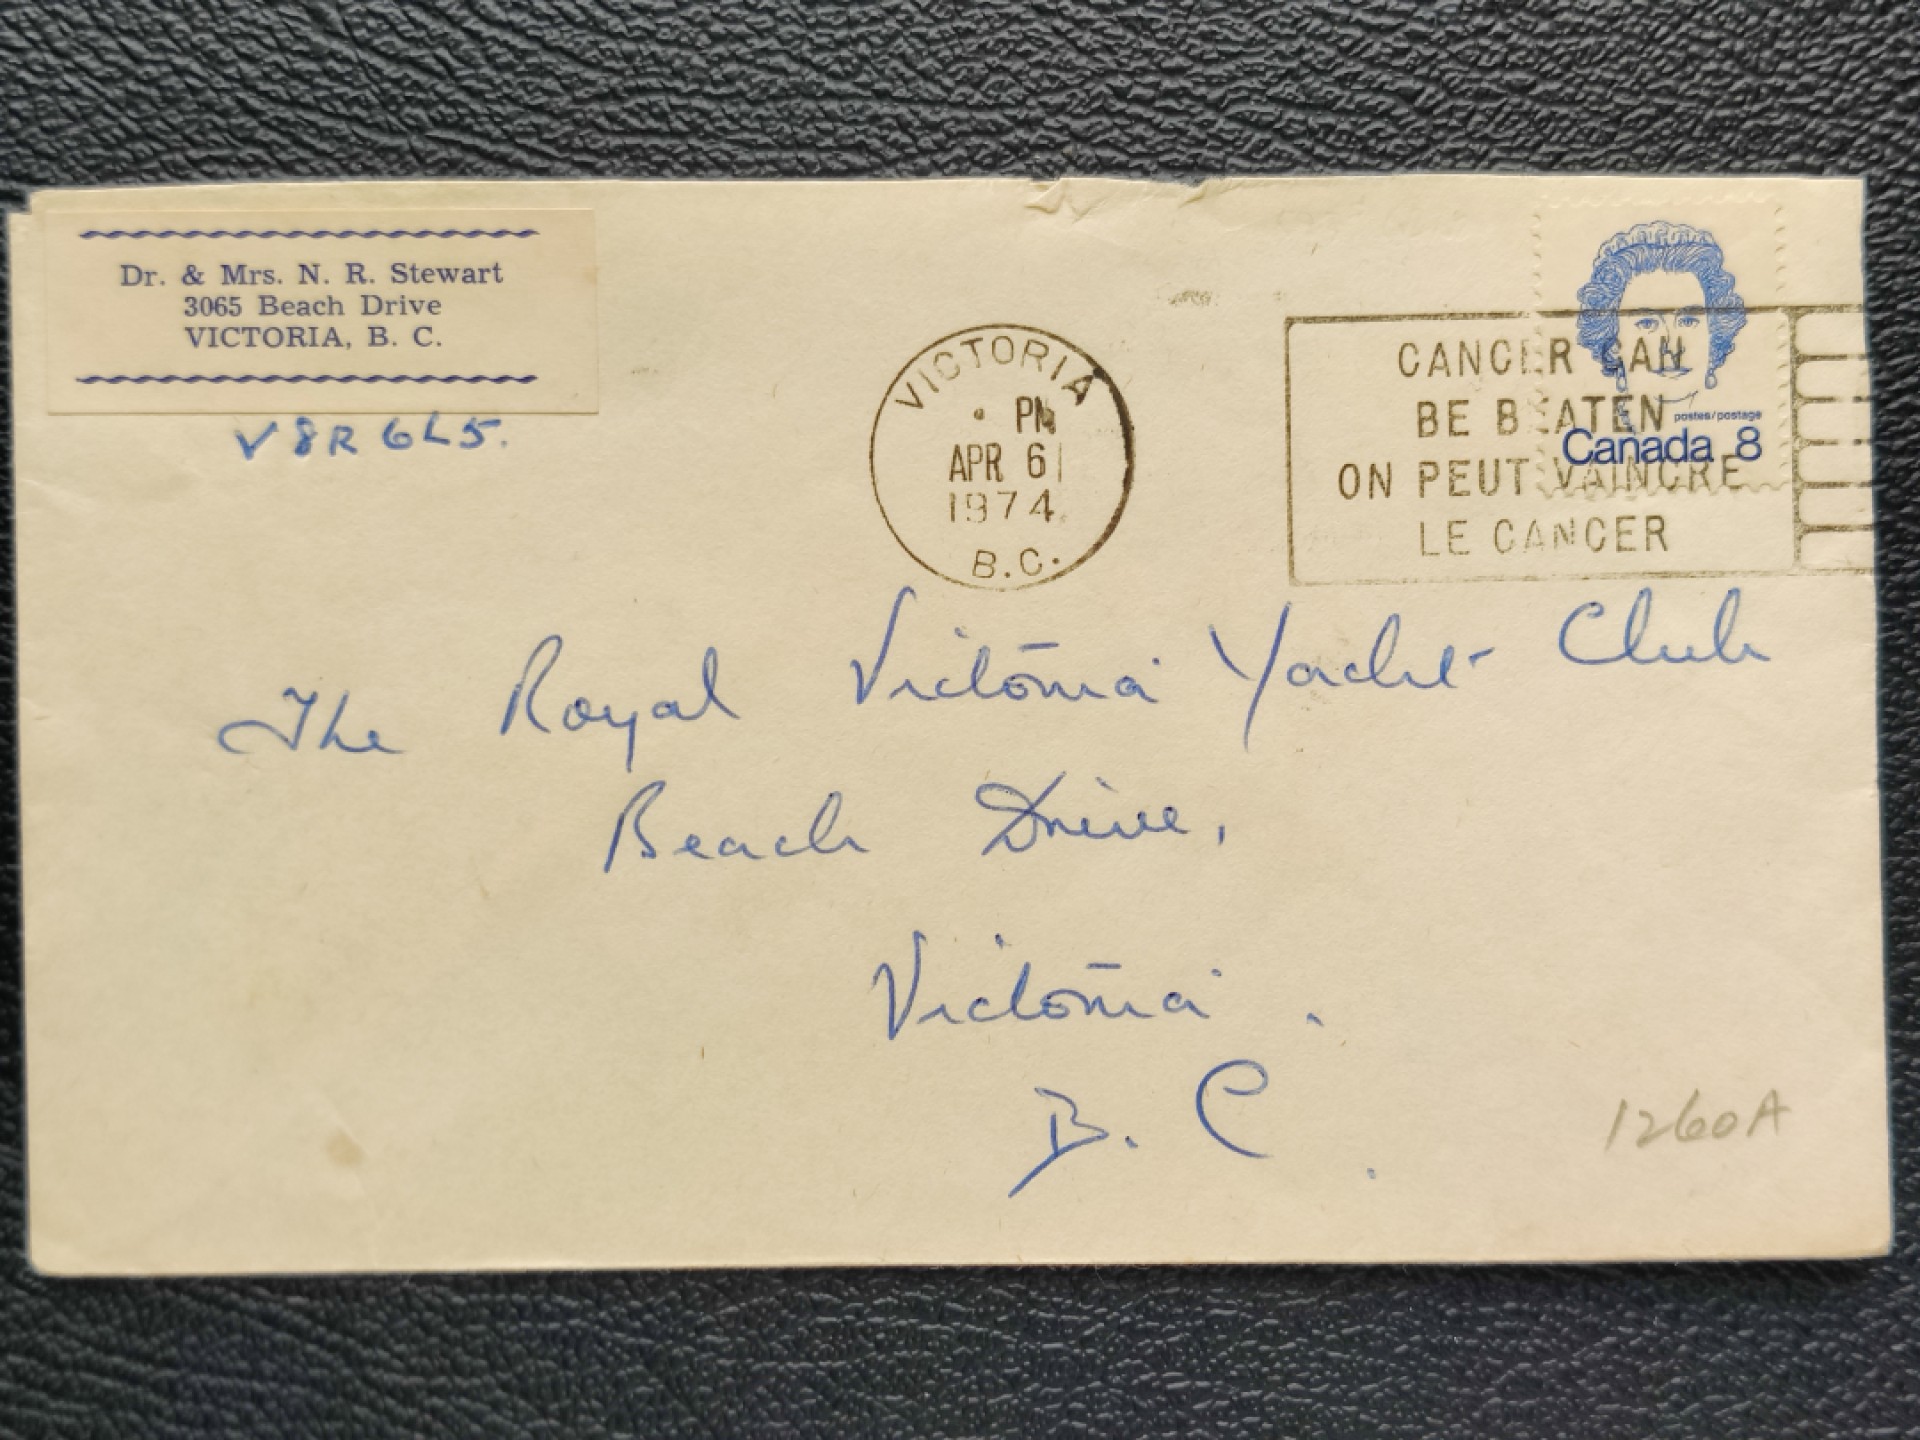 Dr. & Mrs. N. R. Stewart
3065 Beach Drive
VICTORIA, B. C.
V8R 6L5.
VICTORIA
PM
APR 6
1974
B.C.
CANCER CAN
BE BEATEN
ON PEUT VAINCRE
LE CANCER
postes/postage
Canada 8
The Royal Victoria Yacht Club
Beach Drive,
Victoria.
B. C.
1260A